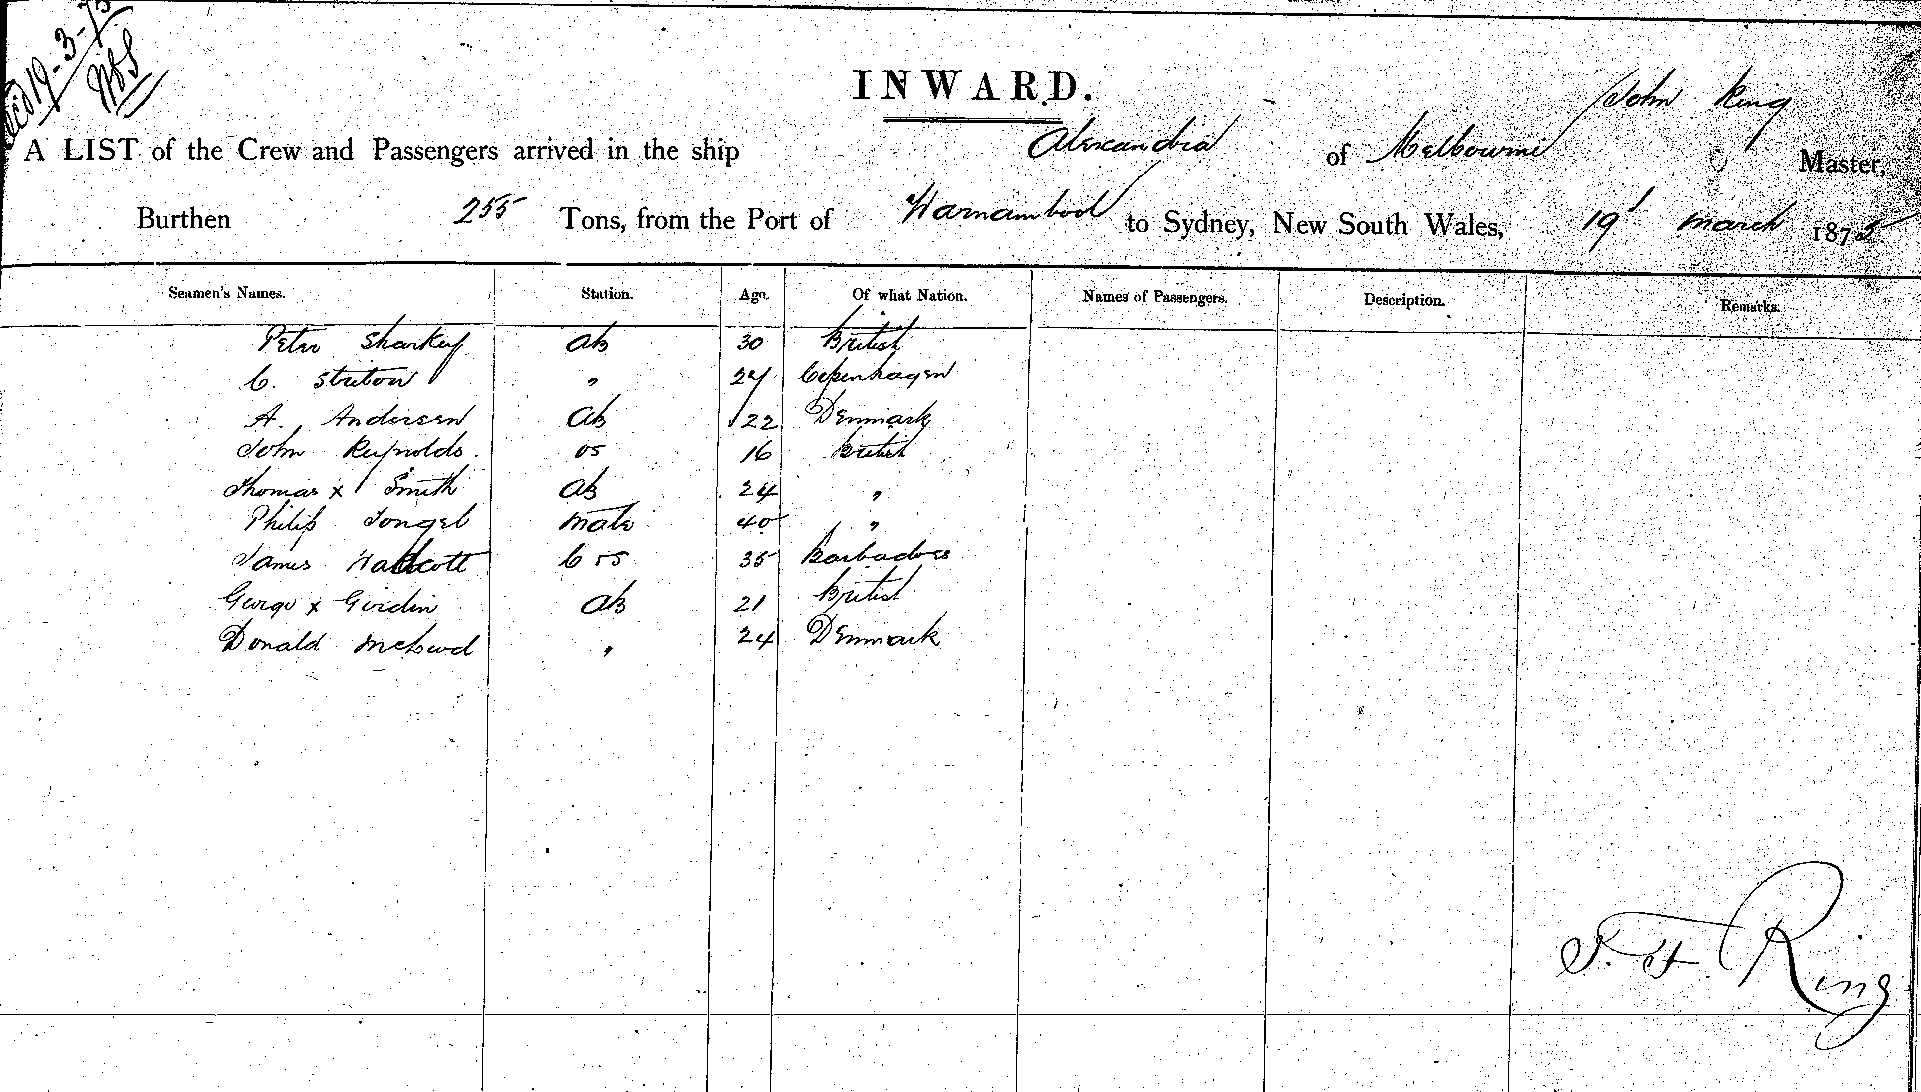 19-3-75
INWARD.
John King
A LIST of the Crew and Passengers arrived in the ship Alexandria of Melbourne Master,
Burthen 255 Tons, from the Port of Warnambool to Sydney, New South Wales, 19 March 1875
Seamen's Names. Station. Age. Of what Nation. Names of Passengers. Description. Remarks.
Peter Sharkey AB 30 British
C. " 24 Copenhagen
A. Andersen AB 22 Denmark
John Reynolds. OS 16 British
Thomas x Smith AB 24 "
Philip Mate 40 "
James 35 Barbadoes
George x AB 21 British
Donald McLeod " 24 Denmark
King